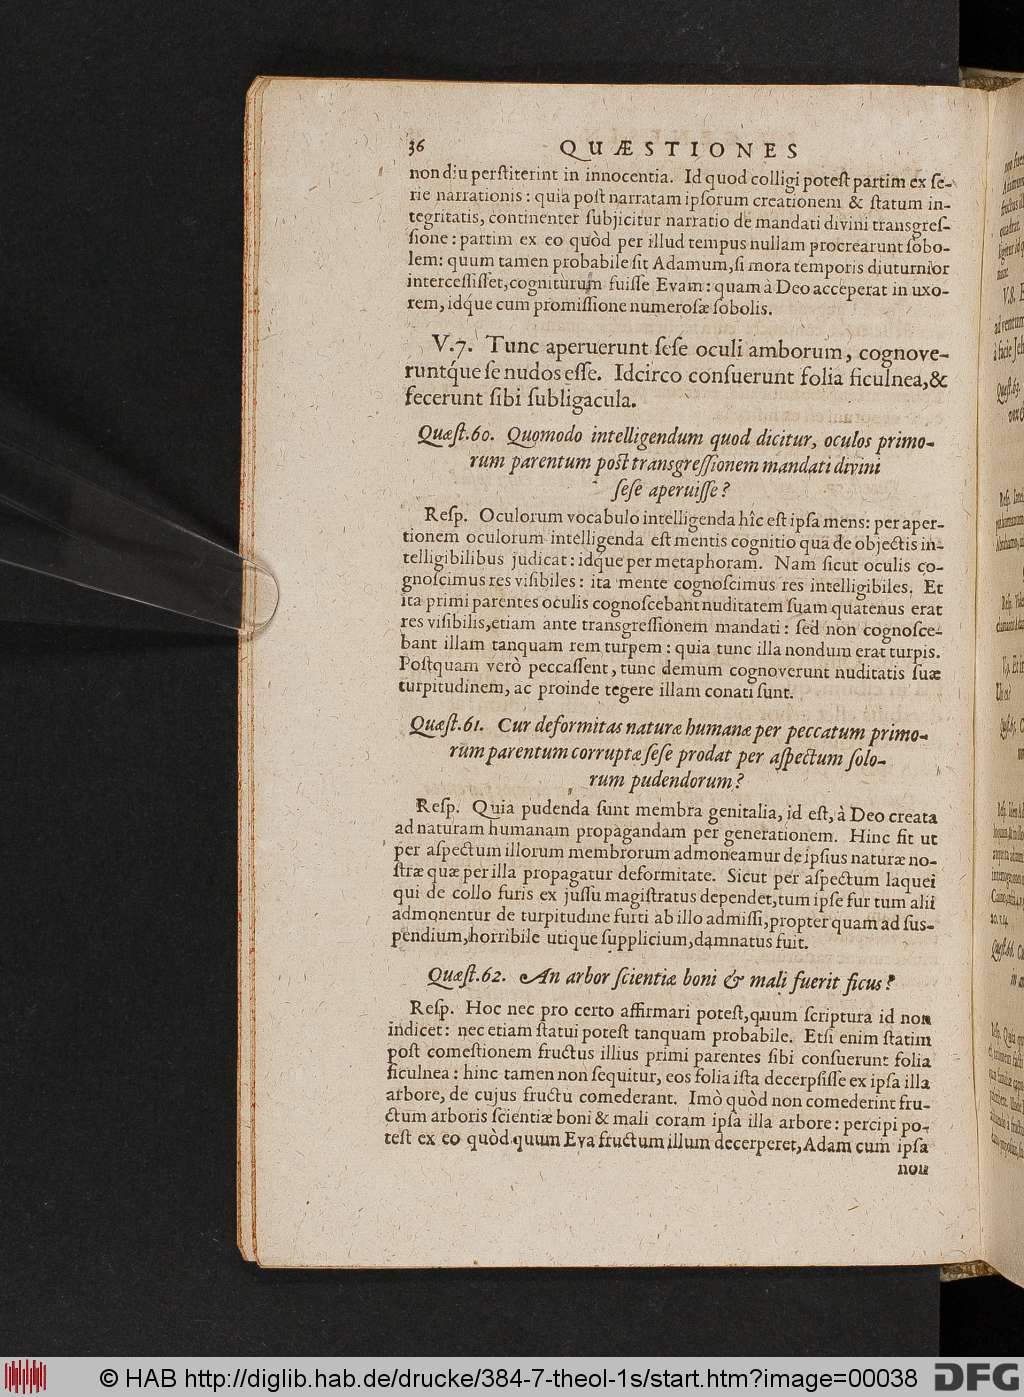 36 QUÆSTIONES
non diu perſtiterint in innocentia. Id quod colligi poteſt partim ex ſe-
rie narrationis : quia poſt narratam ipſorum creationem & ſtatum in-
tegritatis, continenter ſubjicitur narratio de mandati divini transgreſ-
ſione : partim ex eo quòd per illud tempus nullam procrearunt ſobo-
lem: quum tamen probabile ſit Adamum, ſi mora temporis diuturnior
interceſſiſſet, cogniturum fuiſſe Evam : quam à Deo acceperat in uxo-
rem, idq́ue cum promiſſione numeroſæ ſobolis.
V.7. Tunc aperuerunt ſeſe oculi amborum, cognove-
runtq́ue ſe nudos eſſe. Idcirco conſuerunt folia ficulnea, &
fecerunt ſibi ſubligacula.
Quæſt.60. Quomodo intelligendum quod dicitur, oculos primo-
rum parentum poſt transgreſſionem mandati divini
ſeſe aperuiſſe?
Reſp. Oculorum vocabulo intelligenda hîc eſt ipſa mens: per aper-
tionem oculorum intelligenda eſt mentis cognitio qua de objectis in-
telligibilibus judicat: idque per metaphoram. Nam ſicut oculis co-
gnoſcimus res viſibiles : ita mente cognoſcimus res intelligibiles. Et
ita primi parentes oculis cognoſcebant nuditatem ſuam quatenus erat
res viſibilis, etiam ante transgreſſionem mandati : ſed non cognoſce-
bant illam tanquam rem turpem : quia tunc illa nondum erat turpis.
Poſtquam verò peccaſſent, tunc demum cognoverunt nuditatis ſuæ
turpitudinem, ac proinde tegere illam conati ſunt.
Quæſt.61. Cur deformitas naturæ humanæ per peccatum primo-
rum parentum corruptæ ſeſe prodat per aſpectum ſolo-
rum pudendorum?
Reſp. Quia pudenda ſunt membra genitalia, id eſt, à Deo creata
ad naturam humanam propagandam per generationem. Hinc fit ut
per aſpectum illorum membrorum admoneamur de ipſius naturæ no-
ſtræ quæ per illa propagatur deformitate. Sicut per aſpectum laquei
qui de collo furis ex juſſu magiſtratus dependet, tum ipſe fur tum alii
admonentur de turpitudine furti ab illo admiſſi, propter quam ad ſus-
pendium, horribile utique ſupplicium, damnatus fuit.
Quæſt.62. An arbor ſcientiæ boni & mali fuerit ficus?
Reſp. Hoc nec pro certo affirmari poteſt, quum ſcriptura id non
indicet: nec etiam ſtatui poteſt tanquam probabile. Etſi enim ſtatim
poſt comeſtionem fructus illius primi parentes ſibi conſuerunt folia
ficulnea : hinc tamen non ſequitur, eos folia iſta decerpſiſſe ex ipſa illa
arbore, de cujus fructu comederant. Imò quòd non comederint fru-
ctum arboris ſcientiæ boni & mali coram ipſa illa arbore : percipi po-
teſt ex eo quòd quum Eva fructum illum decerperet, Adam cum ipſa
non
© HAB http://diglib.hab.de/drucke/384-7-theol-1s/start.htm?image=00038
DFG